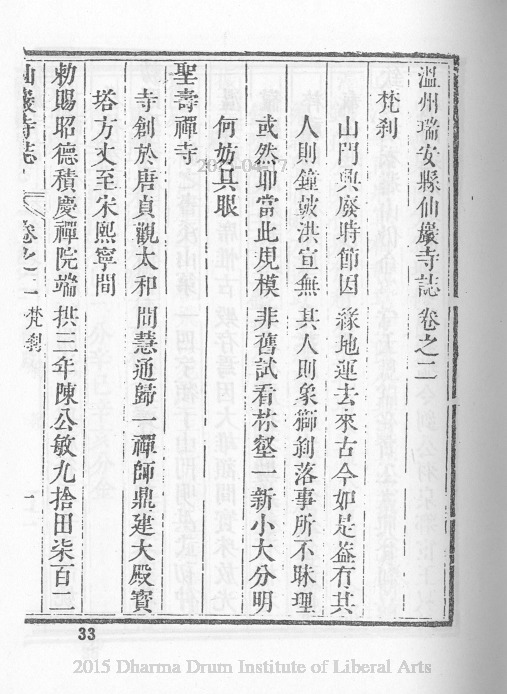 溫州瑞安縣仙巖寺誌 卷之二
梵刹
山門興廢時節因緣地運去來古今如是葢有其
人則鐘皷洪宣無其人則象獅剝落事所不昧理
或然耶當此規模非舊試看林壑一新小大分明
何妨具眼
聖壽禪寺
寺創於唐貞觀太和間慧通歸一禪師鼎建大殿寶
塔方丈至宋熙寧間
勅賜昭德積慶禪院端拱三年陳公敏九捨田柒百二
仙巖寺誌 卷之二 梵刹 一
33
2015 Dharma Drum Institute of Liberal Arts